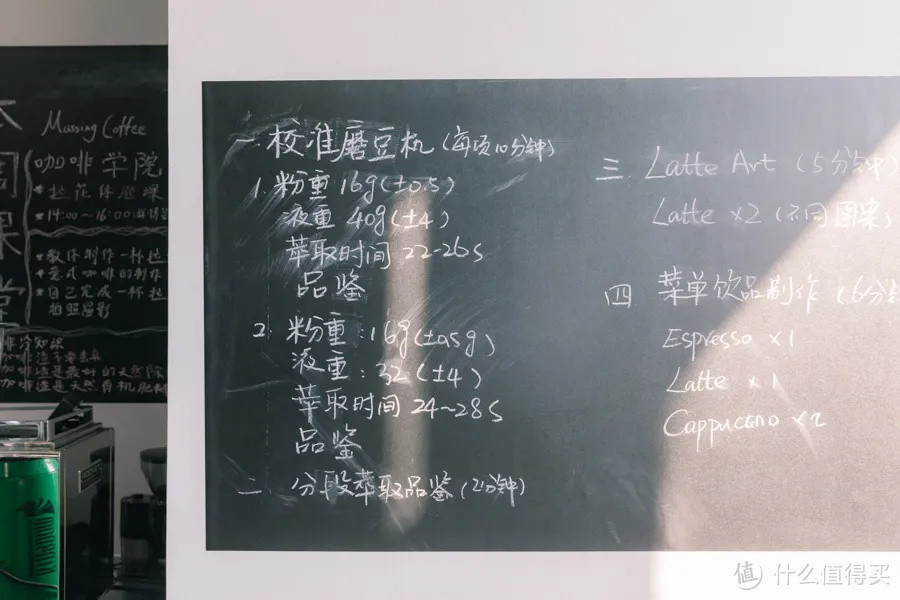 Mussing Coffee
咖啡学院
拉花体验课
14:00~16:00
教你制作一杯拉
意式咖啡的制作
自己完成一杯拉
拍照留影
非冷知识
一 校准磨豆机 (每项10分钟)
1. 粉重 16g (±0.5)
液重 40g (±4)
萃取时间 22-26s
品鉴
2. 粉重: 16g (±0.5g)
液重: 32 (±4)
萃取时间 24~28s
品鉴
二 分段萃取品鉴 (2分钟)
三 Latte Art (5分钟)
Latte x2 (不同图案)
四 菜单饮品制作 (6分钟
Espresso x1
Latte x1
Cappuccino x2
值 什么值得买